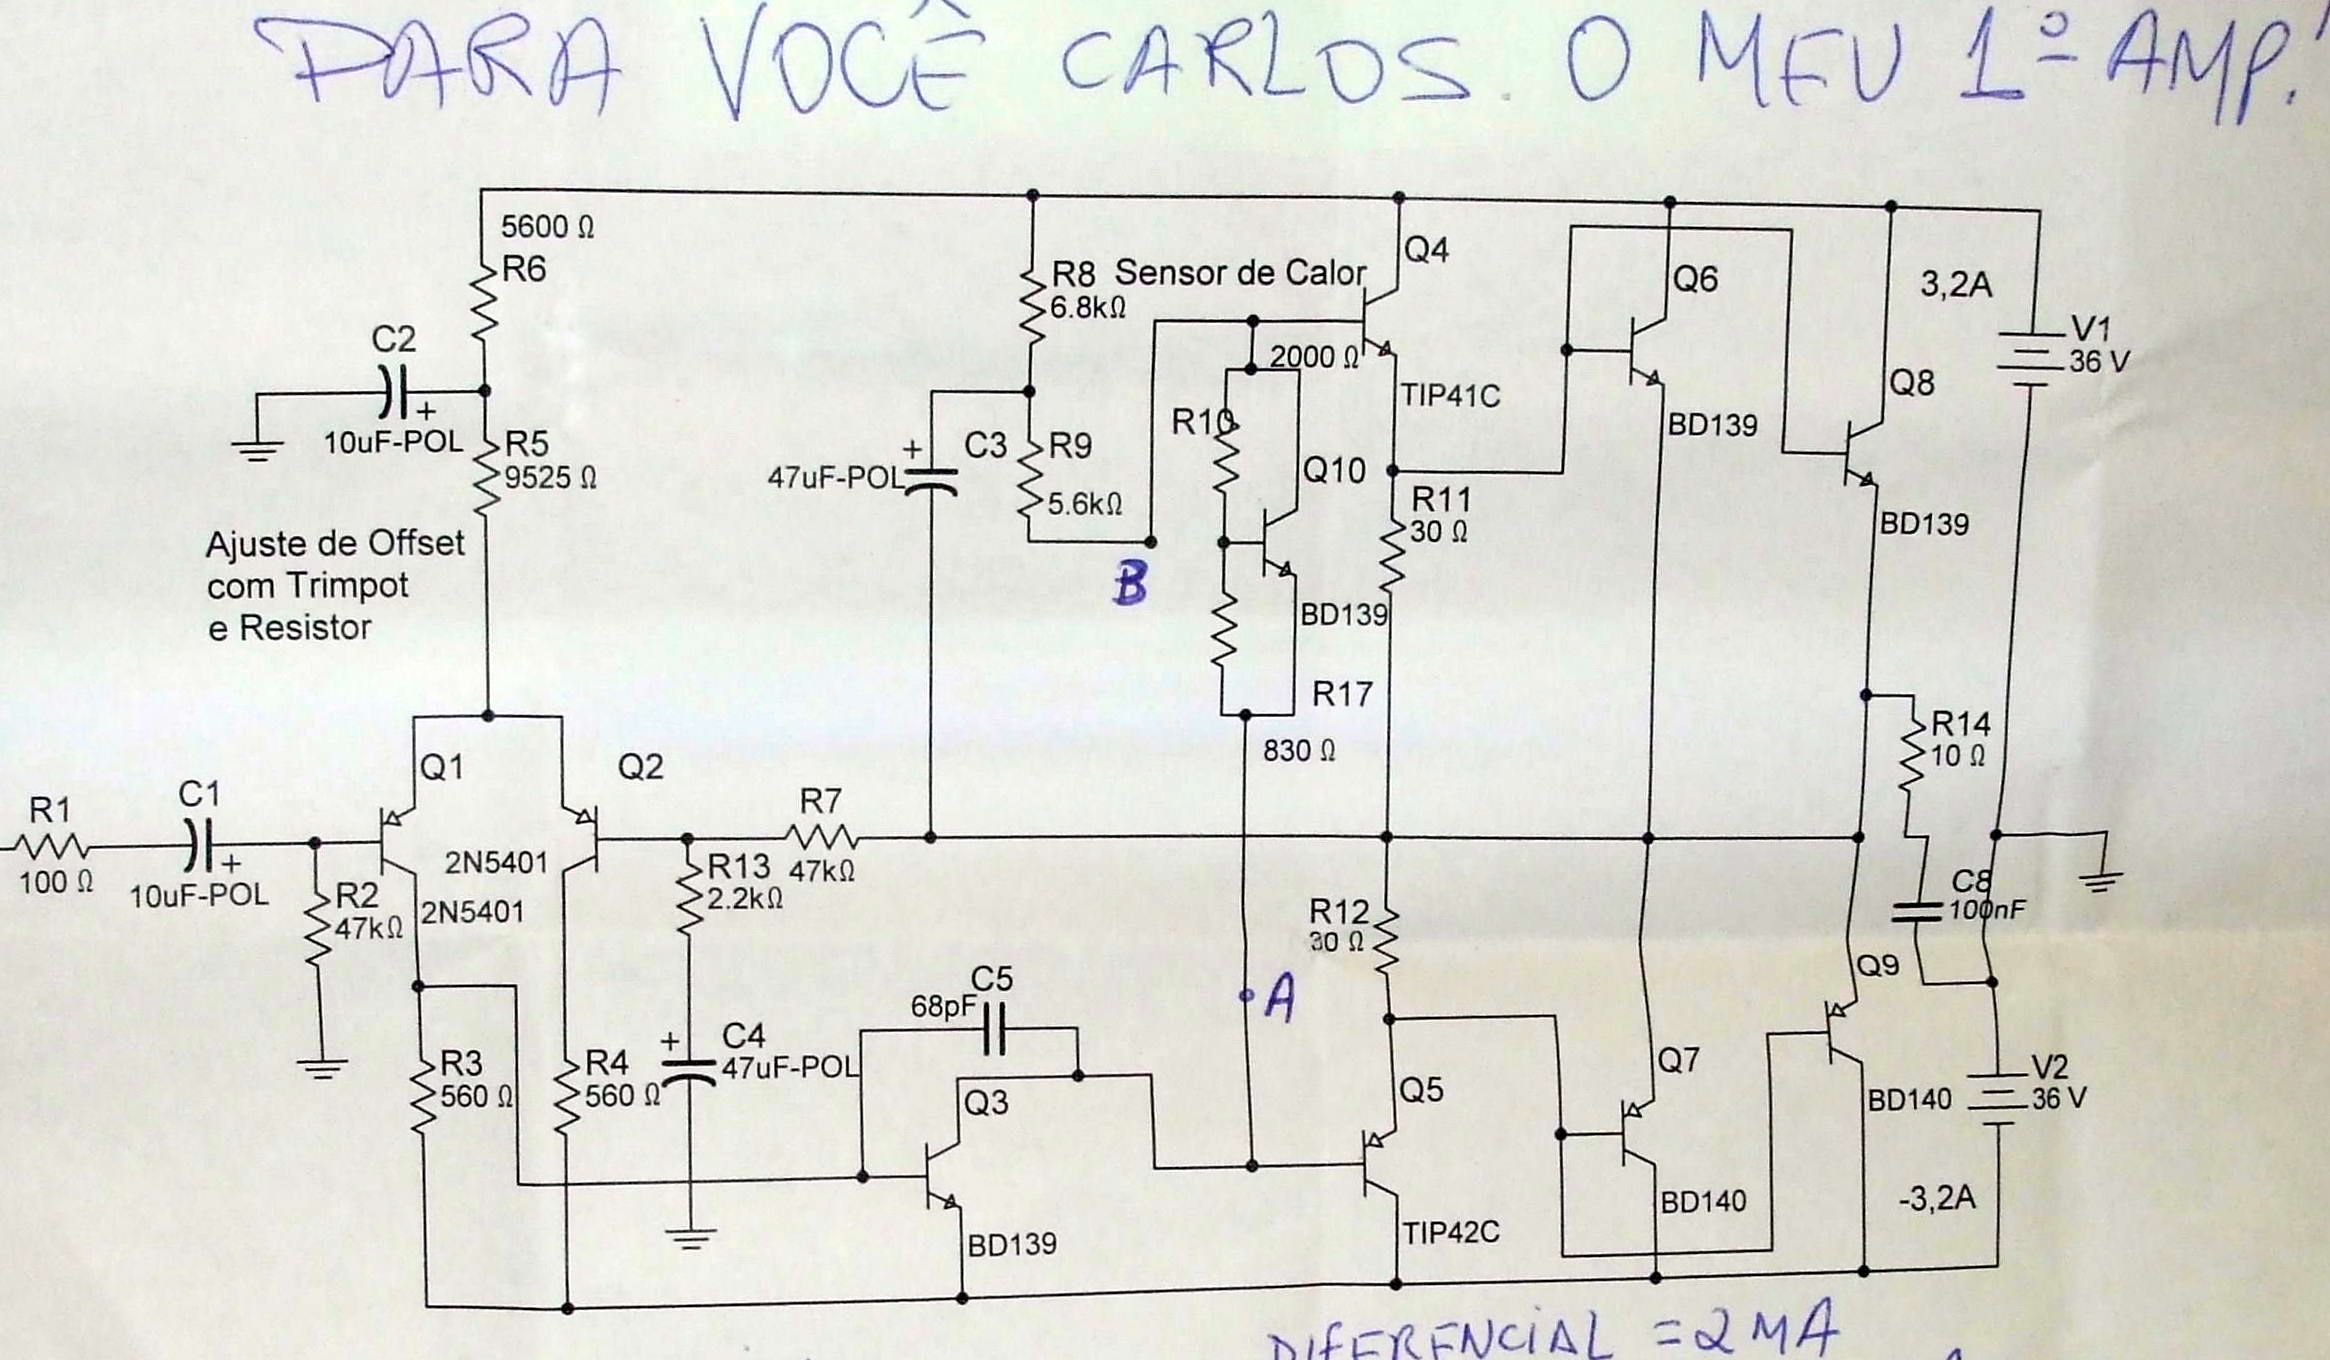 PARA VOCÊ CARLOS. O MEU 1º AMP!
5600 Ω
R6
C2
10uF-POL
+
R5
9525 Ω
Ajuste de Offset
com Trimpot
e Resistor
R8
6.8kΩ
Sensor de Calor
C3
+
47uF-POL
R9
5.6kΩ
B
2000 Ω
R10
Q10
BD139
R17
830 Ω
Q4
TIP41C
R11
30 Ω
Q6
BD139
Q8
BD139
3,2A
V1
36 V
R14
10 Ω
C8
100nF
R1
100 Ω
C1
+
10uF-POL
R2
47kΩ
Q1
2N5401
Q2
2N5401
R7
47kΩ
R13
2.2kΩ
R12
30 Ω
A
C5
68pF
C4
+
47uF-POL
R3
560 Ω
R4
560 Ω
Q3
BD139
Q5
TIP42C
Q7
BD140
Q9
BD140
V2
36 V
-3,2A
DIFERENCIAL = 2 MA